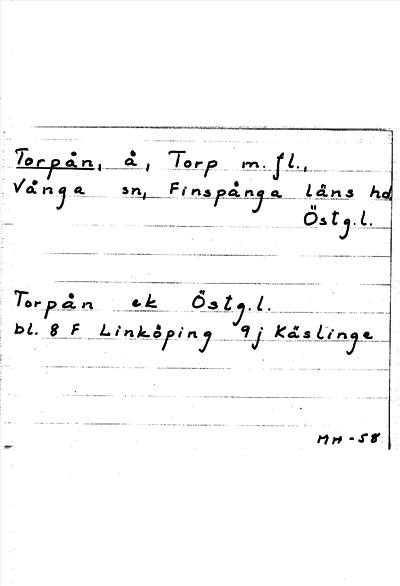 Torpån, å, Torp m.fl.,
Vånga sn, Finspånga läns hd
Östg.l.
Torpån ek Östg.l.
bl. 8 F Linköping 9j Käslinge
MM-58